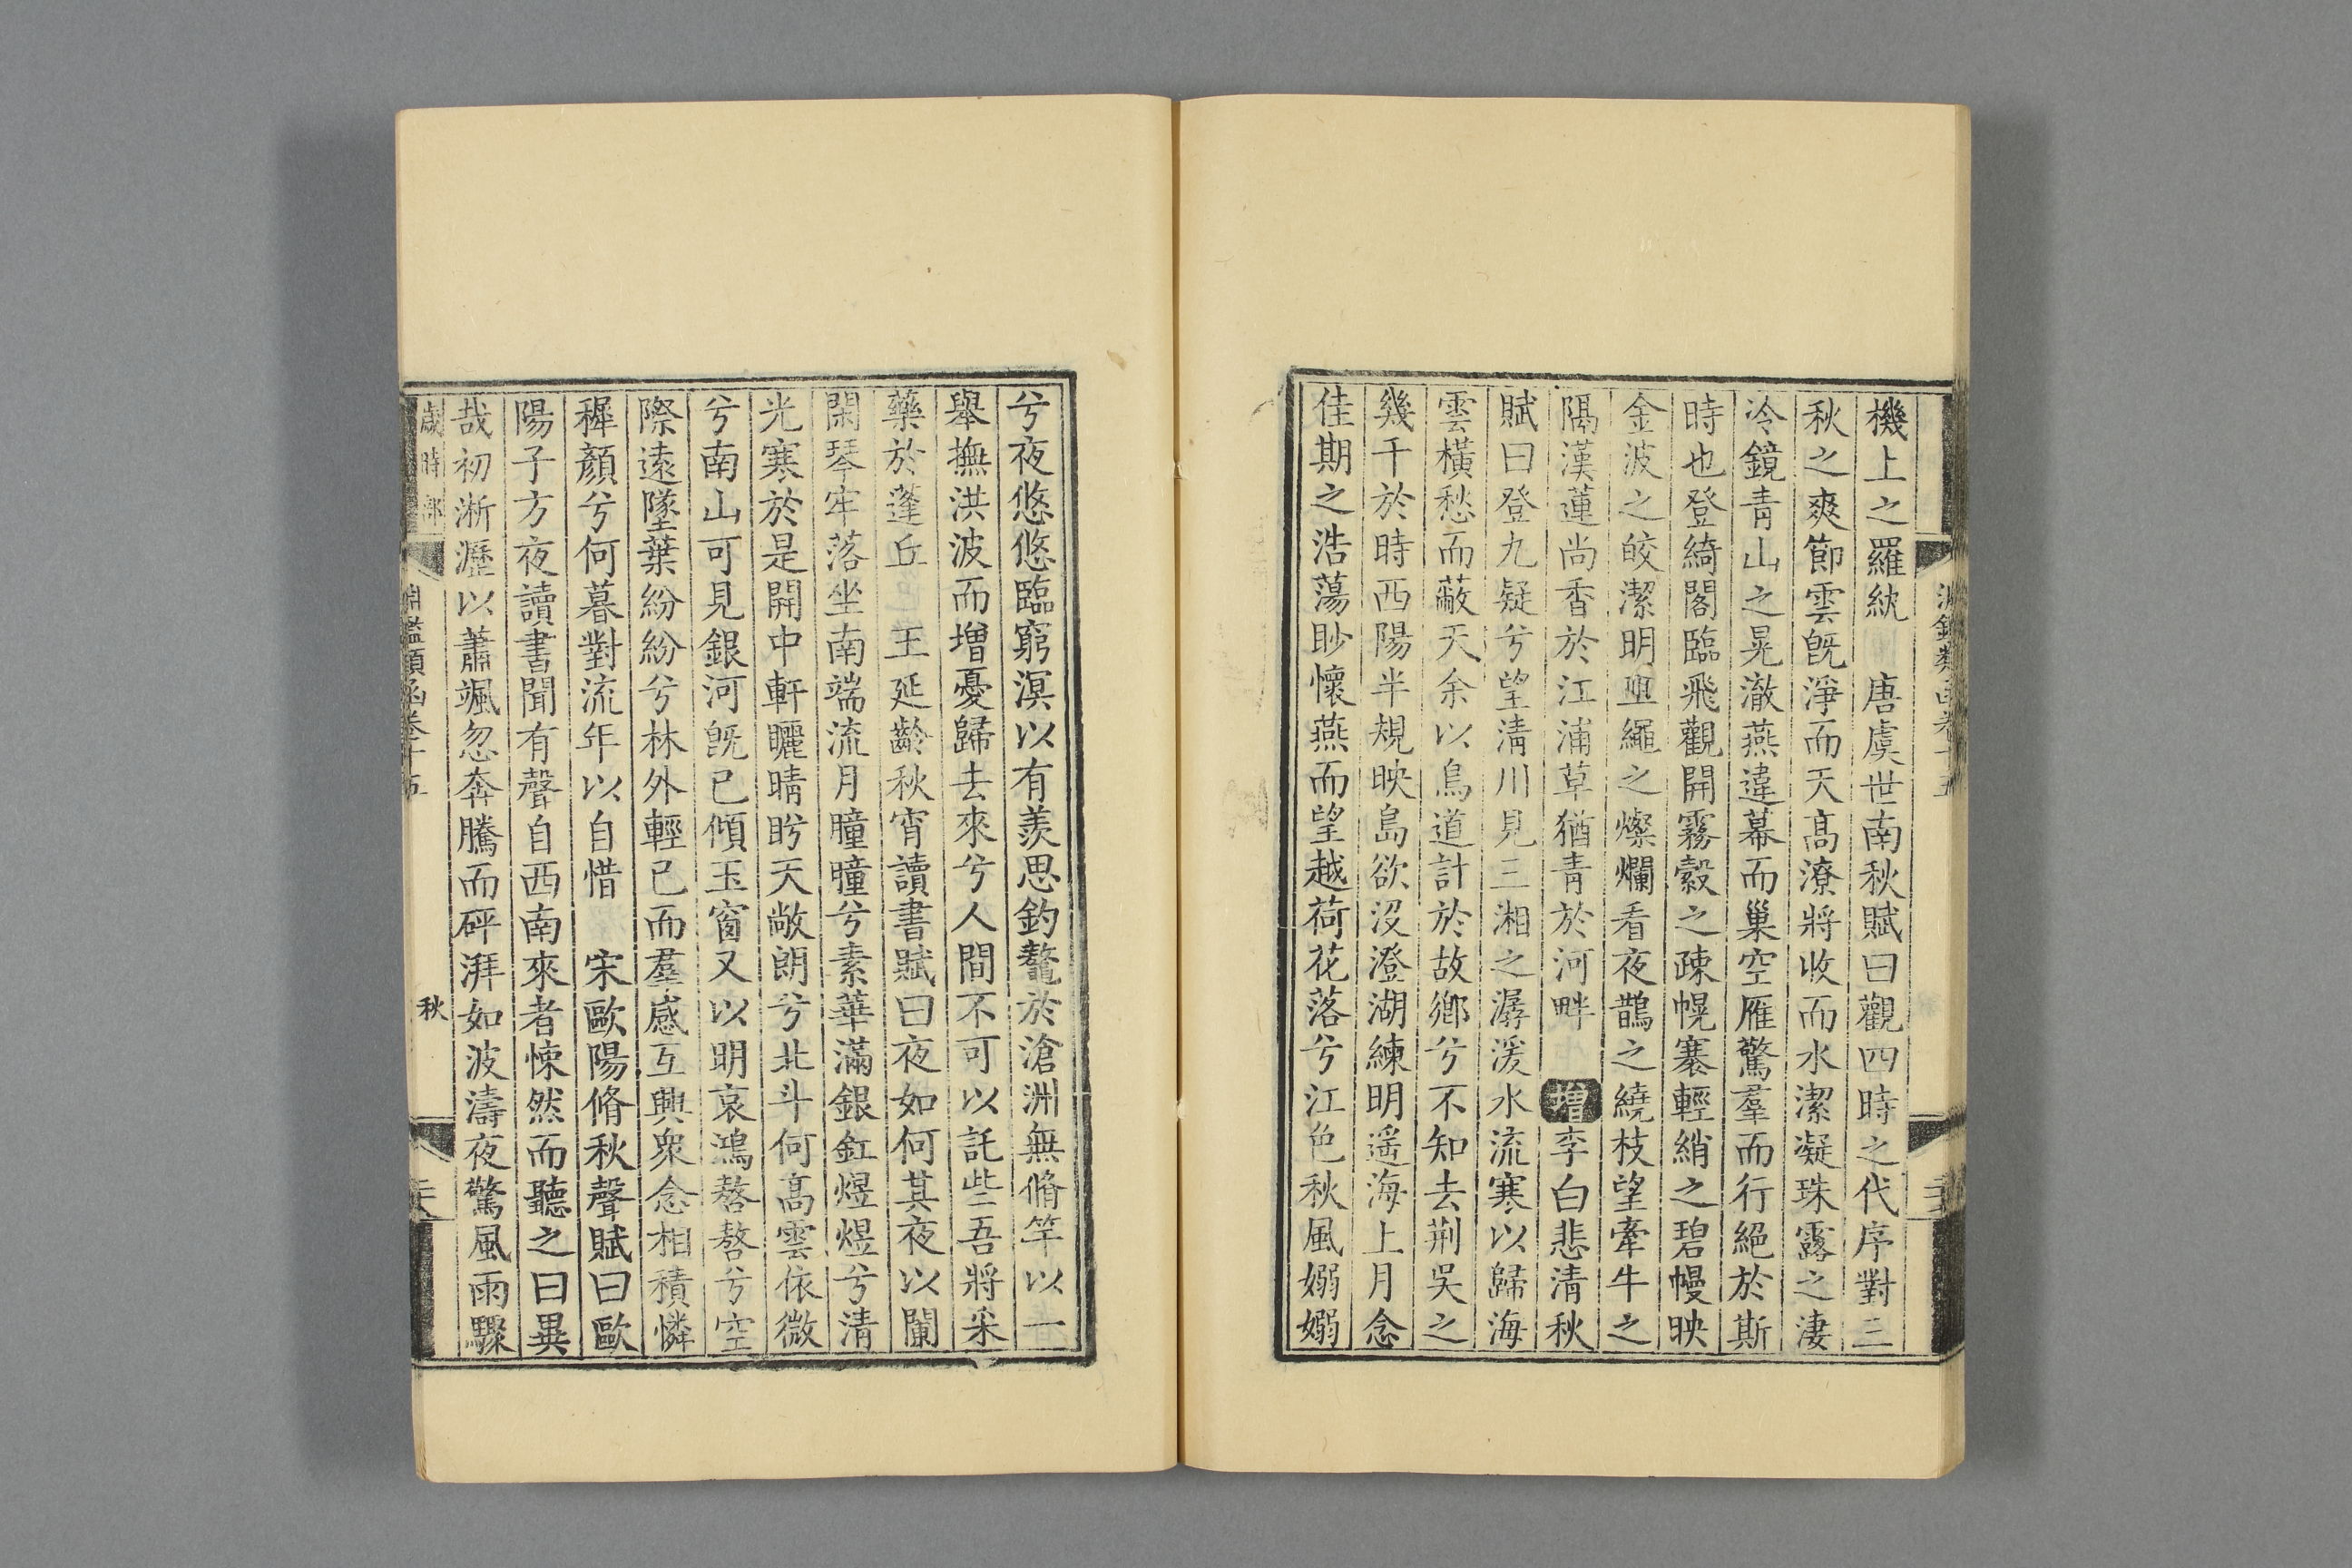 機上之羅紈　唐虞世南秋賦曰觀四時之代序對三
秋之爽節雲旣淨而天高潦將收而水潔凝珠露之淒
冷鏡靑山之晃澈燕違幕而巢空雁驚羣而行絕於斯
時也登綺閣臨飛觀開霧縠之疎幌褰輕綃之碧幔映
金波之皎潔明玉繩之燦爛看夜鵲之繞枝望牽牛之
隔漢蓮尚香於江浦草猶靑於河畔　增李白悲清秋
賦曰登九疑兮望清川見三湘之潺湲水流寒以歸海
雲橫愁而蔽天余以鳥道計於故鄉兮不知去荆吳之
幾千於時西陽半規映島欲沒澄湖練明遥海上月念
佳期之浩蕩眇懷燕而望越荷花落兮江色秋風嫋嫋
兮夜悠悠臨窮溟以有羨思釣鼇於滄洲無脩竿以一
舉撫洪波而增憂歸去來兮人間不可以託些吾將采
藥於蓬丘　王延齡秋宵讀書賦曰夜如何其夜以闌
閑琴牢落坐南端流月瞳曈兮素華滿銀釭煜煜兮清
光寒於是開中軒曬晴眄天敞朗兮北斗何高雲依微
兮南山可見銀河旣已傾玉窗又以明哀鴻嗸嗸兮空
際遠墜葉紛紛兮林外輕已而羣感互興衆念相積憐
穉顏兮何暮對流年以自惜　宋歐陽脩秋聲賦曰歐
陽子方夜讀書聞有聲自西南來者悚然而聽之曰異
哉初淅瀝以蕭颯忽奔騰而砰湃如波濤夜驚風雨驟
歲時部　淵鑑類函卷十五　秋